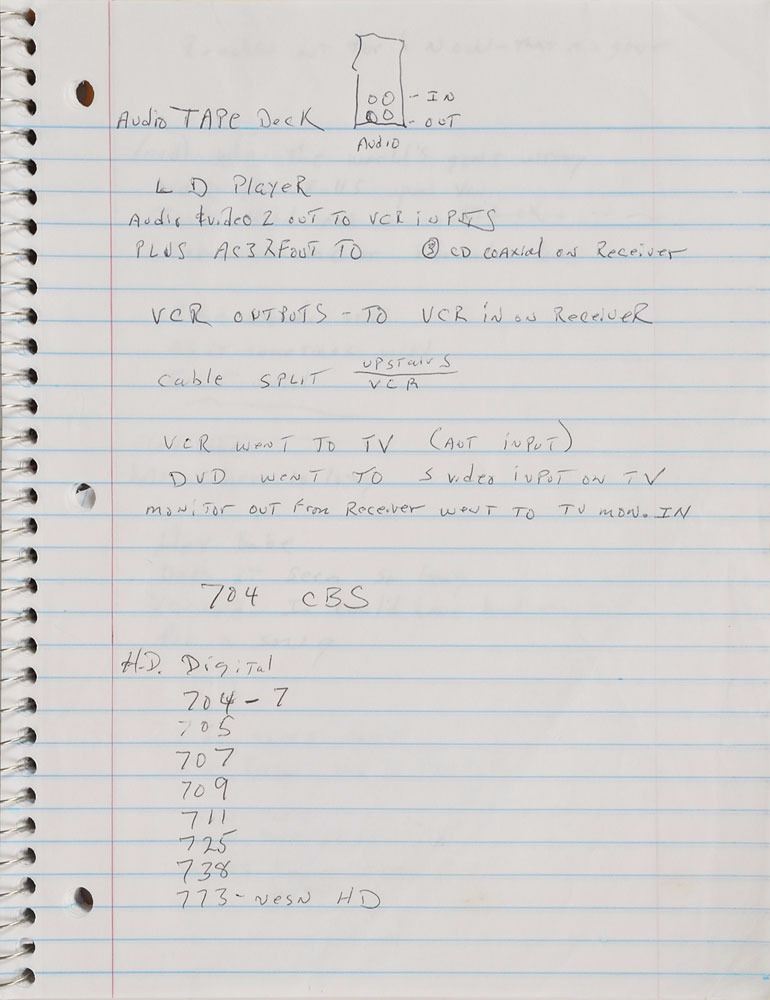 - IN
Audio TAPe Deck - OUT
Audio
L D PlayeR
Audio & video 2 out To VCR iNPUTS
PLUS AC3 RFout TO ③ CD coAxial on Receiver
VCR OUTPUTS - TO VCR iN on ReceiveR
cable SPLIT UPSTairS
VCR
VCR wenT To TV (AnT iNPUT)
DVD wenT TO S video iNPUT on TV
moniTor ouT From Receiver wenT To TV mon. IN
704 CBS
H.D. DigiTal
704 - 7
705
707
709
711
725
738
773 - NesN HD